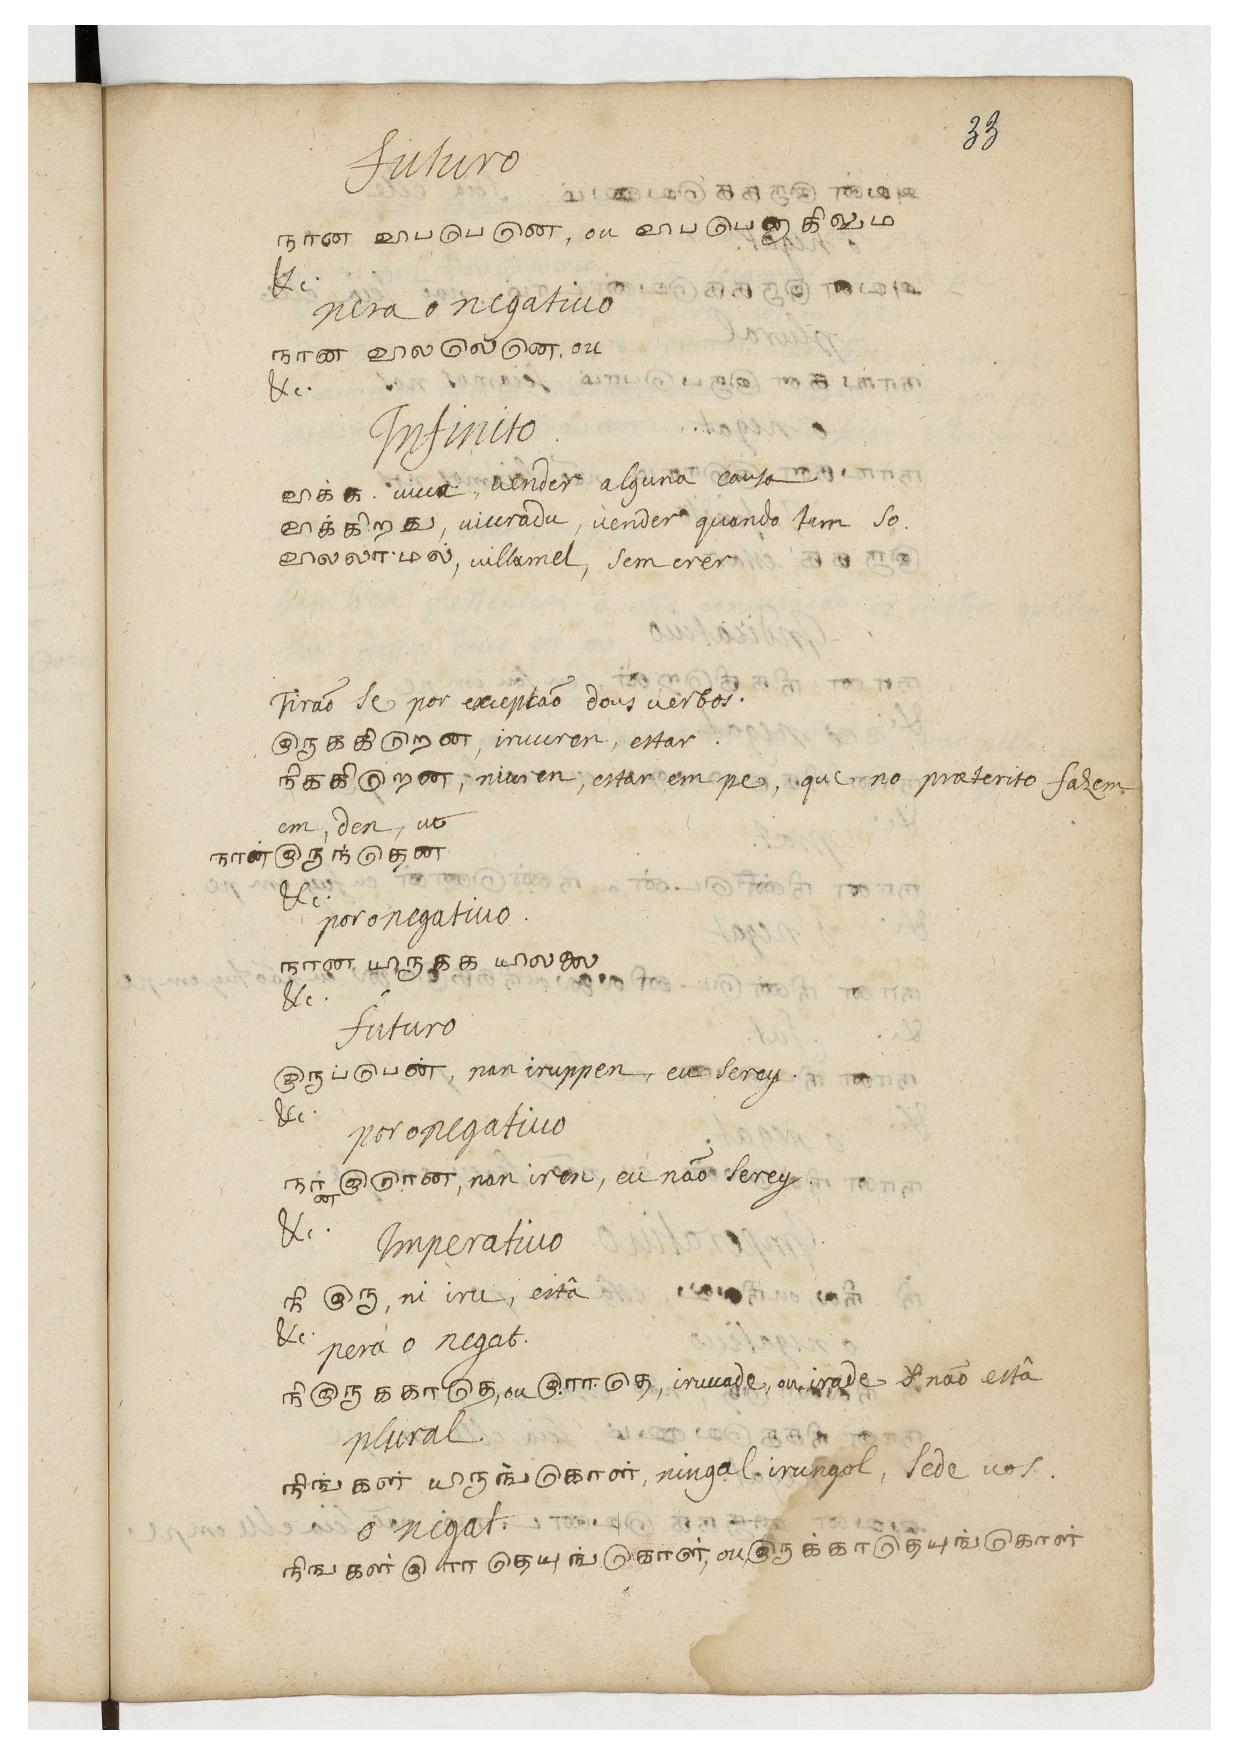 33
Futuro
நான விபடுபடுன, ou
&c.
pera o negativo
நான விலலெலென, ou
&c.
Infinito
விக்க. vicca, vender alguna cousa
விக்கிறது, vicuradu, vender quando tem so.
விலலாமல், villamel, sem crer
Tirão se por exceptão dous verbos.
இருககிறென, iruuren, estar.
நிககிறென, niuren, estar em pe, que no præterito fazem
em, den, ut
நான் இருந்தென
&c.
por o negativo.
நான யிருகக யிலலை
&c.
futuro
இருப்பென், nan iruppen, eu serey.
&c.
por o negativo
நான் இரென, nan iren, eu não serey.
&c.
Imperativo
நி இரு, ni iru, estâ
&c.
pera o negat.
நி இருககாதெ, ou இராதெ, iruuade, ou irade não estâ
plural.
நிங்கள் யிருங்கொள், ningal irungol, sede vos.
o negat.
நிஙகள் இராதெயுங்கொள், ou இருக்காதெயுங்கொள்